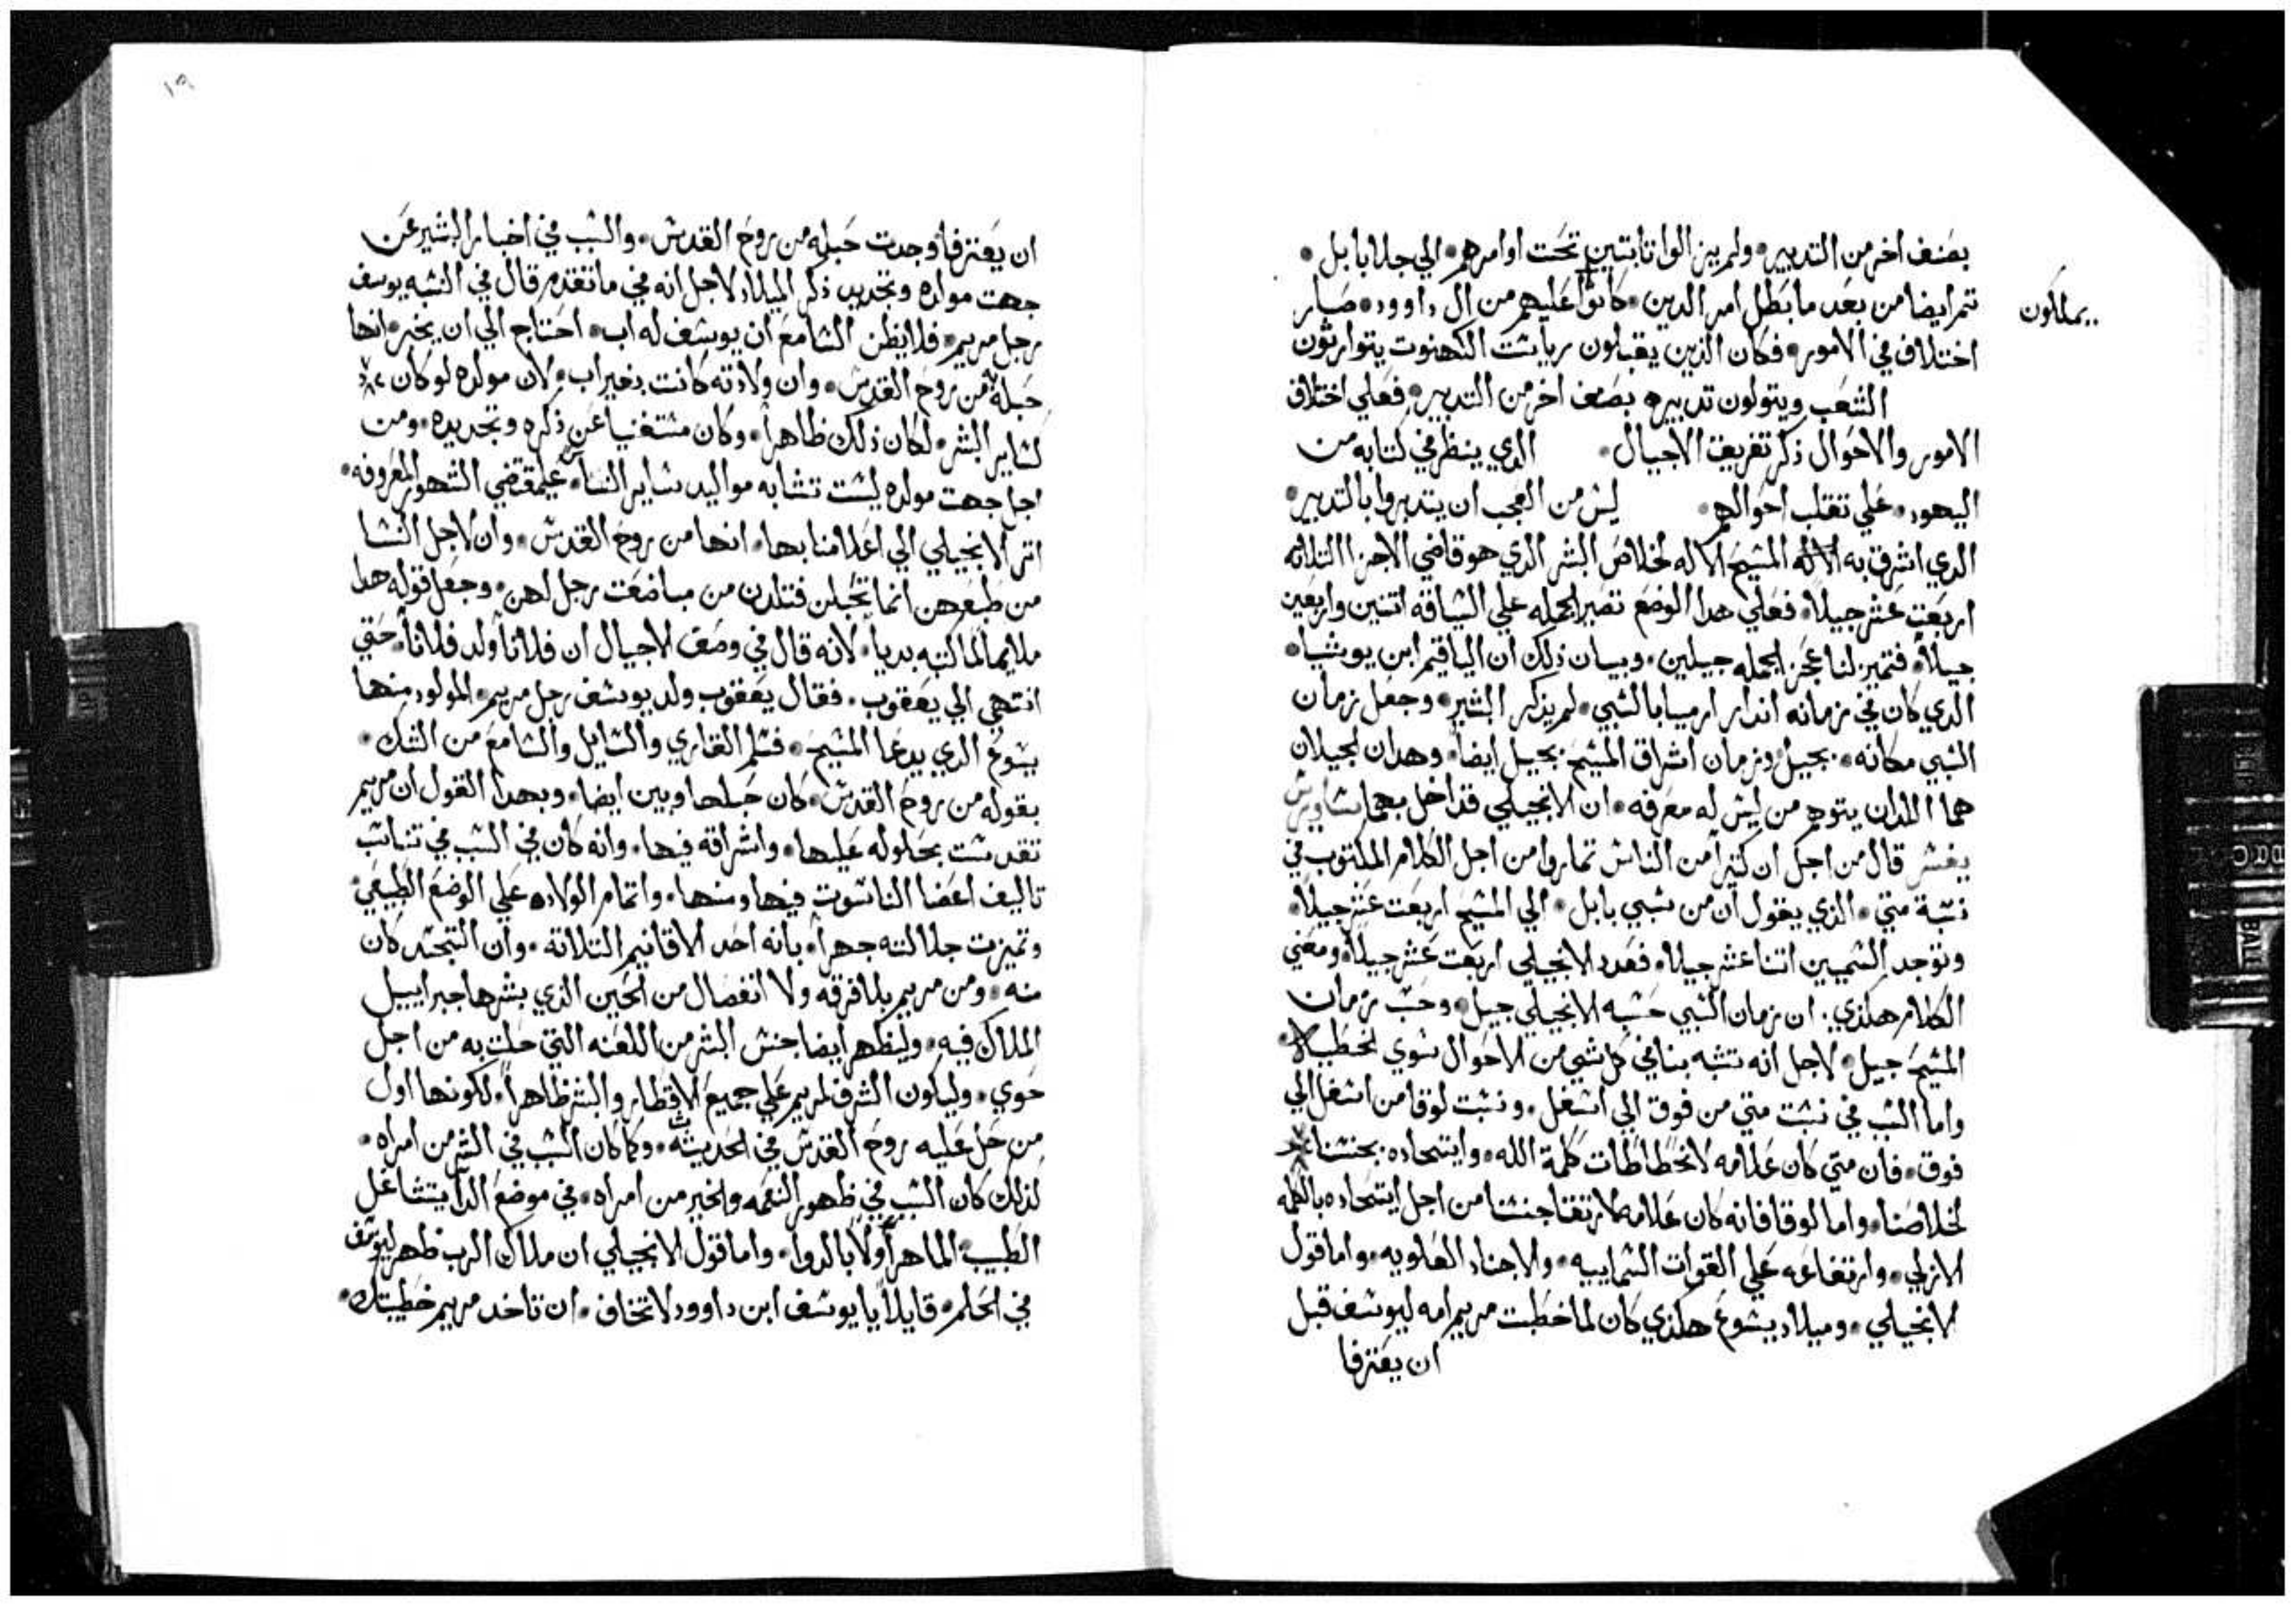 بصنف اخر من التدبير ۰ ولم يزالوا ثابتين تحت اوامرهم ۰ الي جلا بابل ۰
ثم ايضا من بعد ما بطل امر الدين ۰ كانوا عليهم من ال داوود ۰ صار
يملكون
اختلاف في الامور ۰ فكان الذين يقبلون رياست الكهنوت يتوارثون
الشعب ويتولون تدبيره بصنف اخر من التدبير ۰ فعلي اختلاف
الامور والاحوال ذكر تفريق الاجيال ۰ الدي ينظر في كتابه من
اليهود ۰ علي تقلب احوالهم ۰ ليس من العجب ان يتدبروا بالتدبير ۰
الدي اشرق به الاله المسيح الاله لخلاص البشر الدي هو قاضي الاجزا التلاته
اربعت عشر جيلاً ۰ فعلي هدا الوضع تصير الجمله علي السياقه اتنين واربعين
جيلاً ۰ فتميز لنا عجز الجمله جيلين ۰ وبيان ذلك ان الياقيم ابن يوشيا ۰
الدي كان في زمانه اندار ارميا بالسبي ۰ لم يذكر البشير ۰ وجعل زمان
السبي مكانه ۰ بجيل وزمان اشراق المسيح بجيل ايضاً ۰ وهدان الجيلان
هما اللدان يتوهم من ليس له معرفه ۰ ان الانجيلي قد اخل بهما ساويرس
يفسر قال من اجل ان كتيراً من الناس تماروا من اجل الكلام المكتوب في
نسبة متي ۰ الذي يقول ان من سبي بابل ۰ الي المسيح اربعت عشر جيلاً ۰
وتوجد التسميين اتنا عشر جيلا ۰ فعدد الانجيلي اربعت عشر جيلاً ۰ ومعني
الكلام هكذي ۰ ان زمان السبي حسبه الانجيلي جيل ۰ وحسب زمان
المسيح جيل ۰ لاجل انه تشبه بنا في كل شي من الاحوال سوي الخطيه ۰
واما السبب في نسبت متي من فوق الي اسفل ۰ ونسبت لوقا من اسفل الي
فوق ۰ فان متي كان علامه لانحطاطات كلمة الله ۰ وايتحاده بجنسنا
لخلاصنا ۰ واما لوقا فانه كان علامه لارتقا جنسنا من اجل ايتحاده بالكلمه
الازلي ۰ وارتفاعه علي القوات السماييه ۰ والاجناد العلويه ۰ واما قول
الانجيلي ۰ وميلاد يسوع هكذي كان لما خطبت مريم امه ليوسف قبل
ان يعترفا
١٩
ان يعترفا وجدت حبله من روح القدس ۰ والسبب في اخبار البشير عن
جهت مولده وتجديد ذكر الميلاد لاجل انه في ما تقدم قال في النسبه يوسف
رجل مريم ۰ فلا يظن السامع ان يوسف له اب ۰ احتاج الي ان يخبر ۰ انها
حبله من روح القدس ۰ وان ولادته كانت بغير اب ۰ لان مولده لو كان
كساير البشر ۰ لكان ذلك ظاهراً ۰ وكان مستغنياً عن ذكره وتجديده ۰ ومن
اجل جهت مولده ليست تشابه مواليد ساير الناس ۰ علي مقتضي الشهور المعروفه ۰
اتر الانجيلي الي اعلامنا بها ۰ انها من روح القدس ۰ وان لاجل النسا
من طبعهن انما تحبلن فتلدن من مباضعت رجل لهن ۰ وجعل قوله هدا
ملايماً لما كتبه بدياً ۰ لانه قال في وصف الاجيال ان فلاناً ولد فلاناً ۰ حتي
انتهي الي يعقوب ۰ فقال يعقوب ولد يوسف رجل مريم ۰ المولود منها
يسوع الدي يدعا المسيح ۰ فسلم القاري والسايل والسامع من الشك ۰
بقوله من روح القدس ۰ كان حبلها وبين ايضا ۰ وبهدا القول ان مريم
تقدست بحلوله عليها ۰ واشراقه فيها ۰ وانه كان في السبب في تناسب
تاليف اعضا الناسوت فيها ومنها ۰ واتمام الولاده علي الوضع الطبيعي ۰
وتميزت جلالته جهراً ۰ بانه احد الاقانيم التلاتة ۰ وان التجسد كان
منه ۰ ومن مريم بلا فرقه ولا انفصال من الحين الذي بشرها جبراييل
الملاك فيه ۰ وليظهر ايضا جنس البشر من اللعنه التي حلت به من اجل
حوي ۰ وليكون الشرف لمريم علي جميع الاقطار والبشر ظاهراً ۰ لكونها اول
من حل عليه روح القدس في الحديثه ۰ وكما كان السبب في الشر من امراه ۰
كذلك كان السبب في ظهور النعمه والخير من امراه ۰ في موضع الدا يتشاغل
الطبيب الماهر اولاً بالدوا ۰ واما قول الانجيلي ان ملاك الرب ظهر ليوسف
في الحلم ۰ قايلاً يا يوسف ابن داوود لا تخاف ۰ ان تاخد مريم خطيبتك ۰